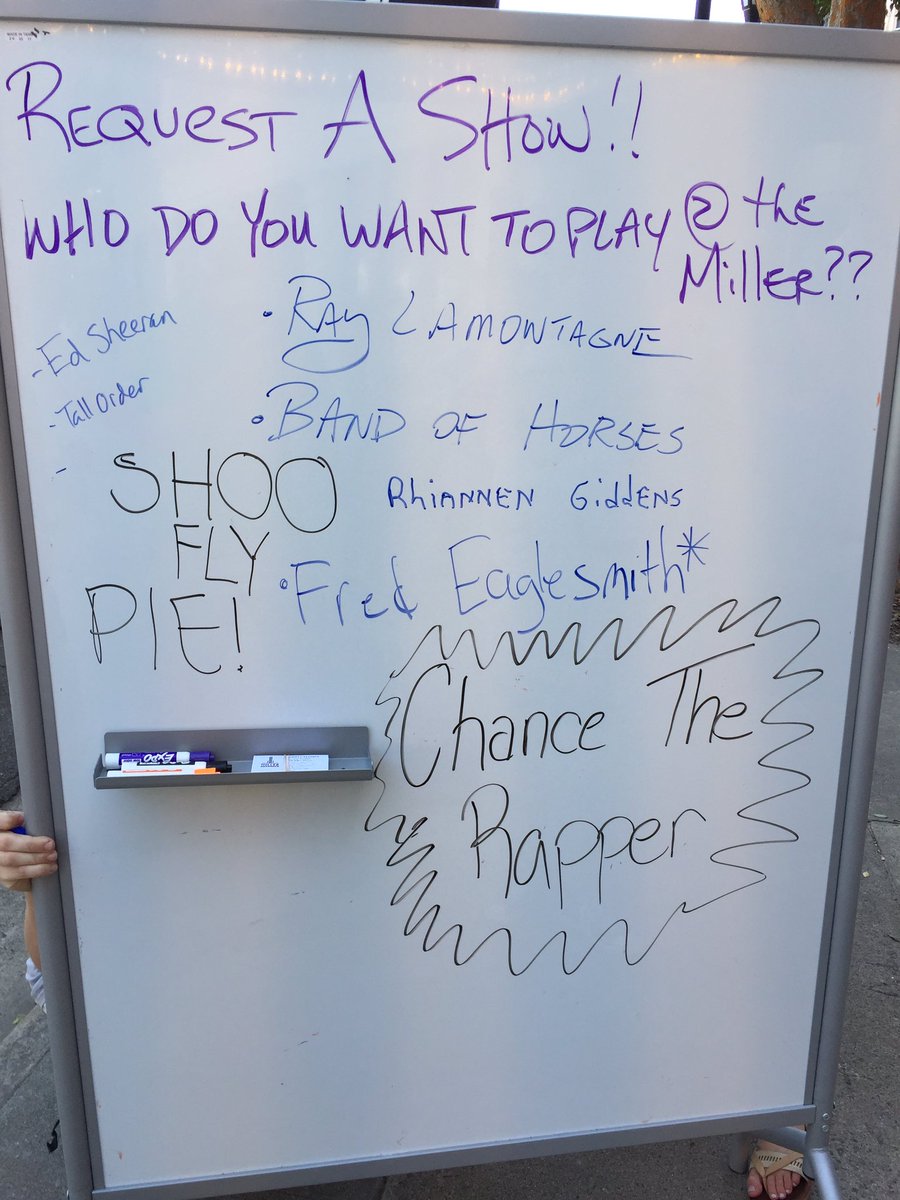 REQUEST A SHOW!!
WHO DO YOU WANT TO PLAY @ the
MILLER??
- Ed Sheeran
- Tall Order
-
• RAY LAMONTAGNE
• BAND OF HORSES
RhiANNEN GiddENS
• Fred Eaglesmith*
SHOO
FLY
PIE!
Chance The
Rapper
EXPO
MILLER